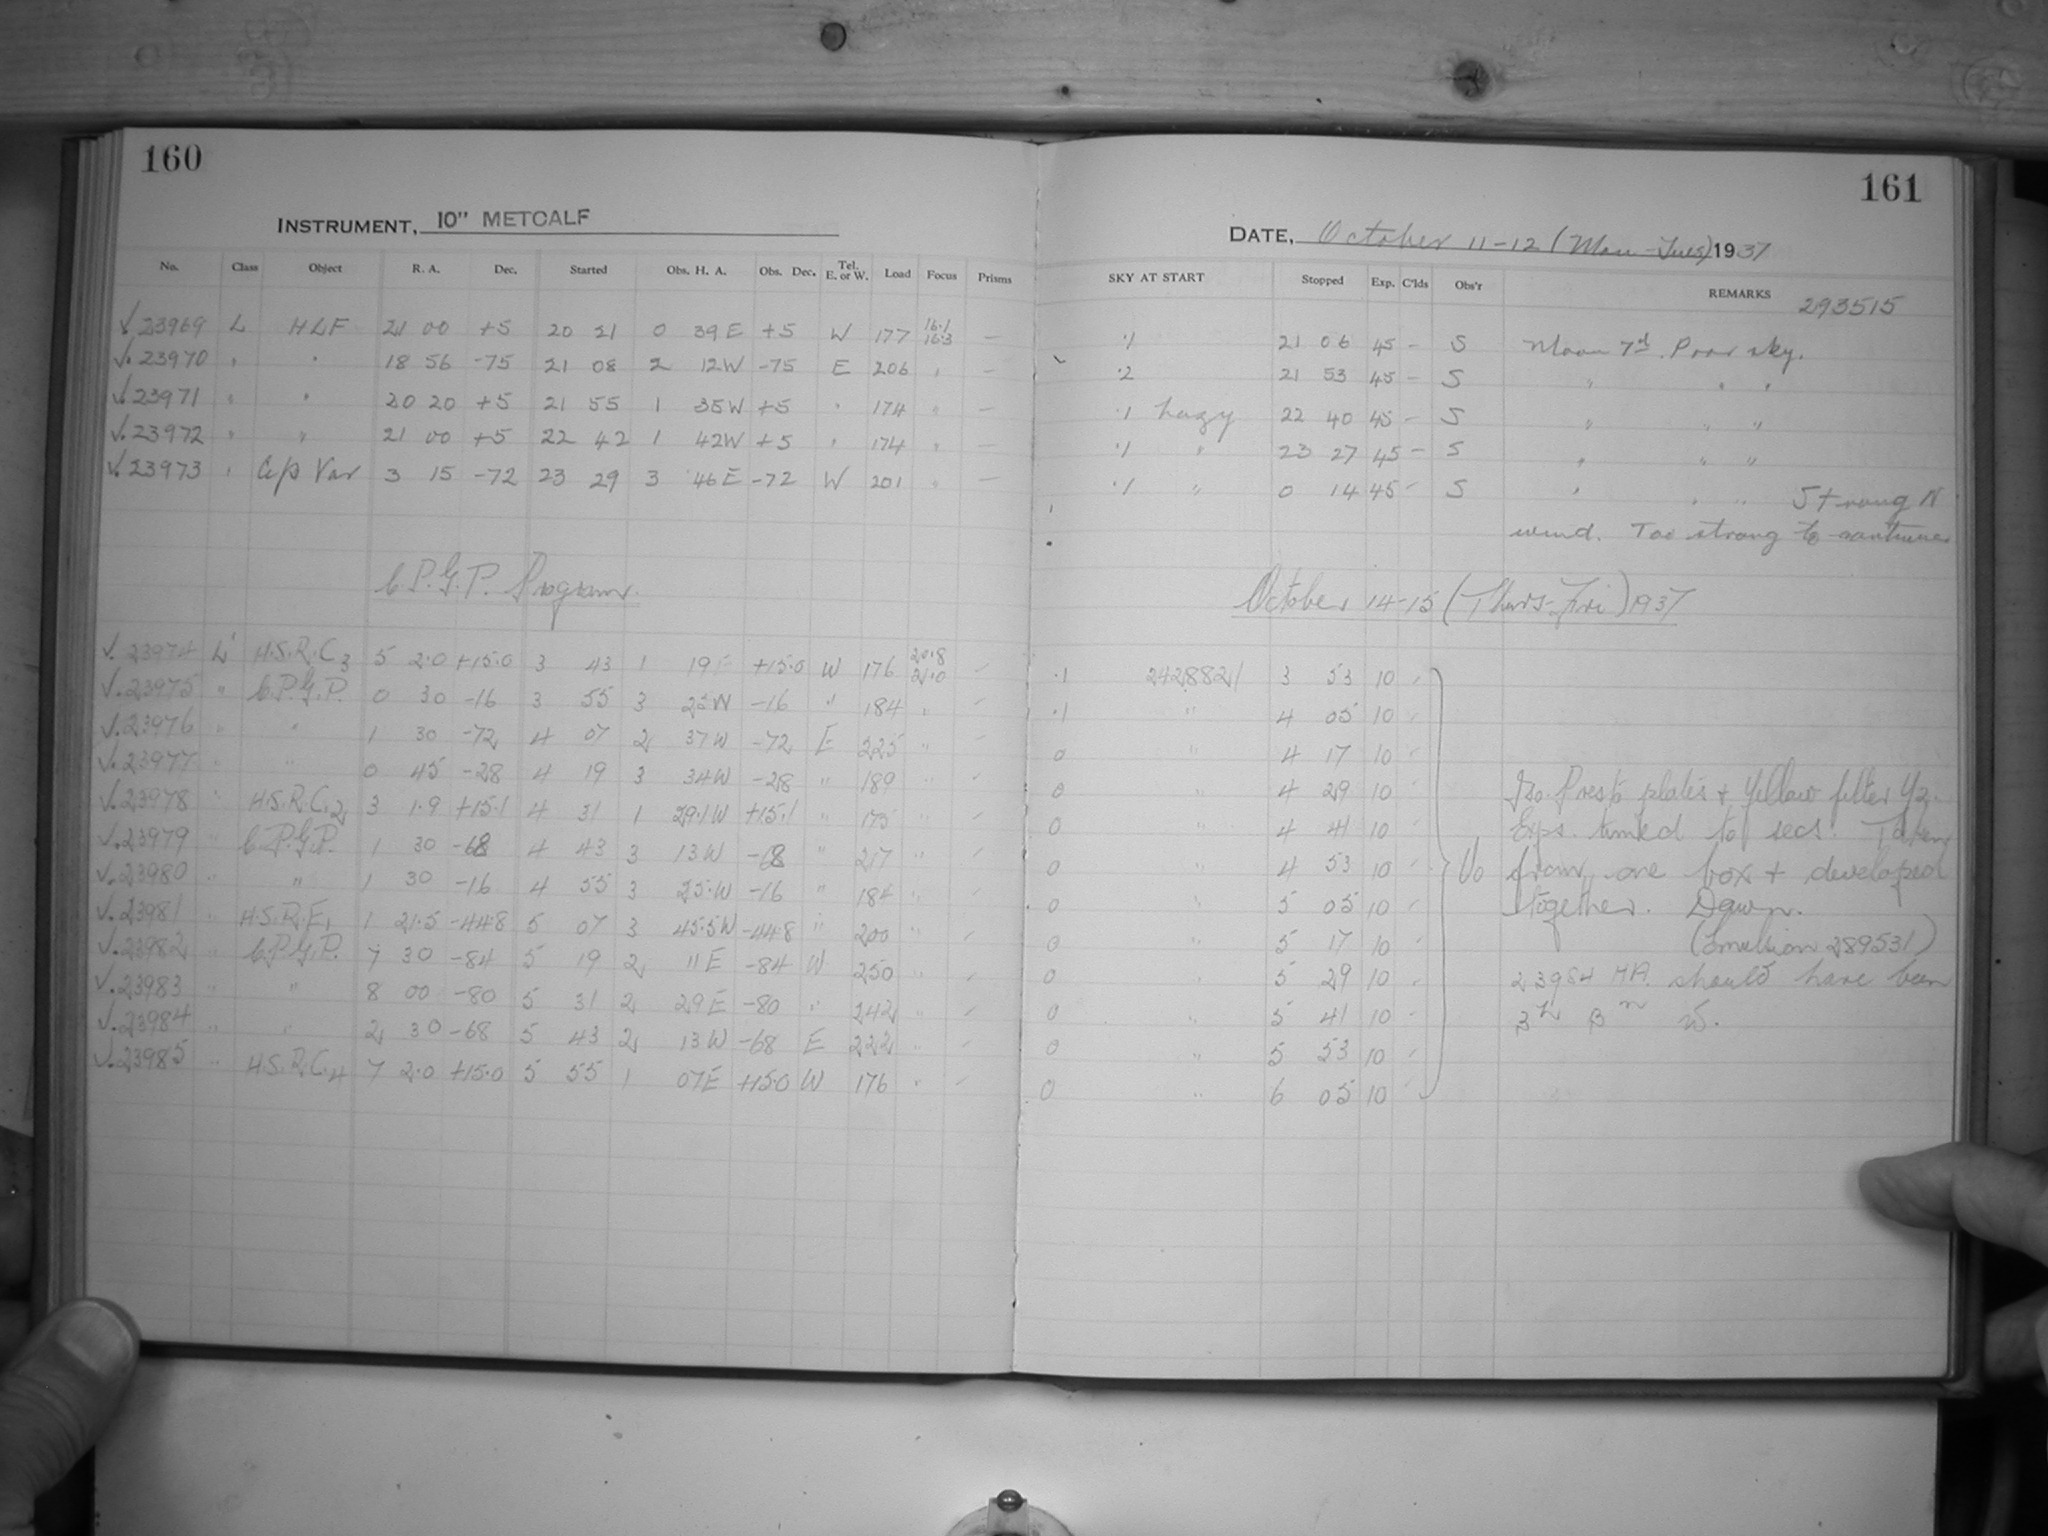 160
INSTRUMENT, 10" METCALF
No. Class Object R. A. Dec. Started Obs. H. A. Obs. Dec. Tel. E. or W. Load Focus Prisms
√ 23969 L HLF 21 00 +5 20 21 0 39 E +5 W 177 16.1 16.3 —
√. 23970 " " 18 56 -75 21 08 2 12W -75 E 206 " —
√. 23971 " " 20 20 +5 21 55 1 35W +5 " 174 " —
√. 23972 " " 21 00 +5 22 42 1 42W +5 " 174 " —
√. 23973 " Cep Var 3 15 -72 23 29 3 46 E -72 W 201 " —
C.P.G.P. Program.
√. 23974 L' H.S.R.C3 5 2.0 +15.0 3 43 1 19 E +15.0 W 176 20.8 21.0
√. 23975 " C.P.G.P. 0 30 -16 3 55 3 W -16 " 184 "
√. 23976 " " 1 30 -72 4 07 2 37W -72 E 225 "
√. 23977 " " 0 45 -28 4 19 3 34W -28 " 189 "
√. 23978 " H.S.R.C.2 3 1.9 +15.1 4 31 1 29.1W +15.1 " 175 "
√. 23979 " C.P.G.P. 1 30 -68 4 43 3 13W -68 " 217 "
√. 23980 " " 1 30 -16 4 55 3 25.W -16 " 184 "
√. 23981 " H.S.R.F1 1 21.5 -44.8 5 07 3 45.5W -44.8 " 200 "
√. 23982 " C.P.G.P. 7 30 -84 5 19 2 11 E -84 W 250 "
√. 23983 " " 8 00 -80 5 31 2 29 E -80 " 242 "
√. 23984 " " 2 30 -68 5 43 2 13W -68 E 222 "
√. 23985 " H.S.R.C.4 7 2.0 +15.0 5 55 1 07E +15.0 W 176 "
161
DATE, October 11-12 (Mon-Tues) 1937
SKY AT START Stopped Exp. C'lds Obs'r REMARKS 293515
.1 21 06 45 — S Moon 7d. Poor sky.
.2 21 53 45 — S " " "
.1 hazy 22 40 45 — S " " "
.1 " 23 27 45 — S " " "
.1 " 0 14 45 — S " " " Strong N
wind. Too strong to continue
October 14-15 (Thurs-Fri) 1937
.1 2428821 3 53 10
.1 " 4 05 10
0 " 4 17 10
0 " 4 29 10 Iso. Presto plates + Yellow filter Y2.
0 " 4 41 10 Exps. timed to secs. Taken
0 " 4 53 10 Uo from one box + developed
0 " 5 05 10 together. Dawn.
0 " 5 17 10 (Emulsion 289531)
0 " 5 29 10 23984 HA. should have been
0 " 5 41 10 3h 13m W.
0 " 5 53 10
0 " 6 05 10